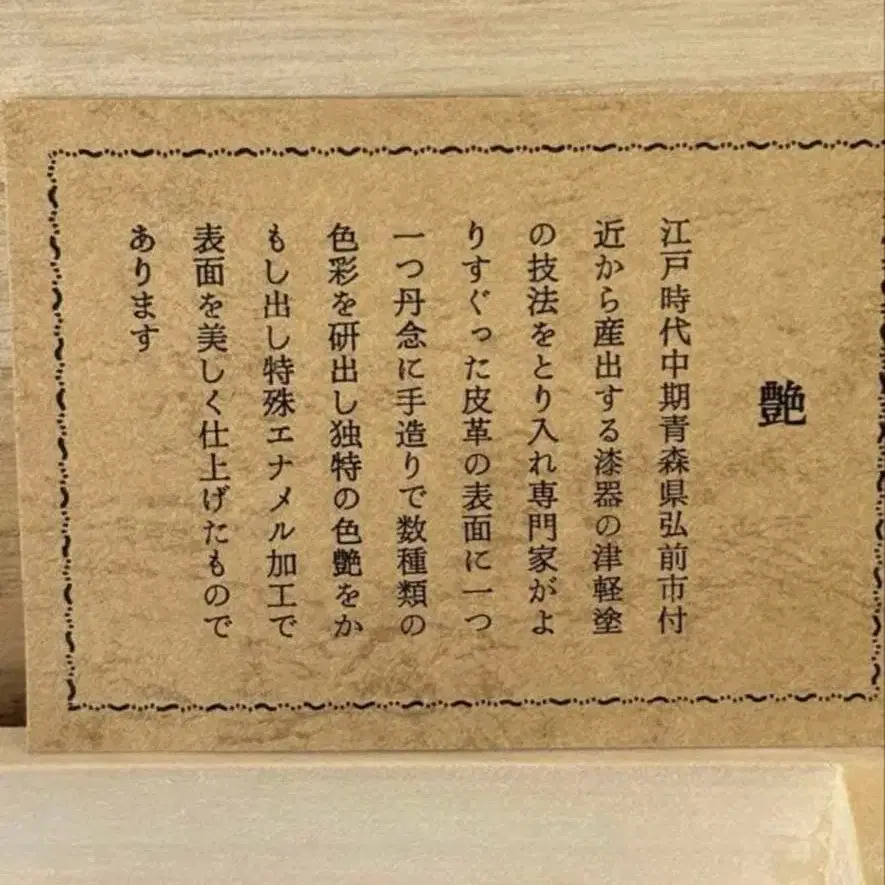 艶
江戸時代中期青森県弘前市付
近から産出する漆器の津軽塗
の技法をとり入れ専門家がよ
りすぐった皮革の表面に一つ
一つ丹念に手造りで数種類の
色彩を研出し独特の色艶をか
もし出し特殊エナメル加工で
表面を美しく仕上げたもので
あります